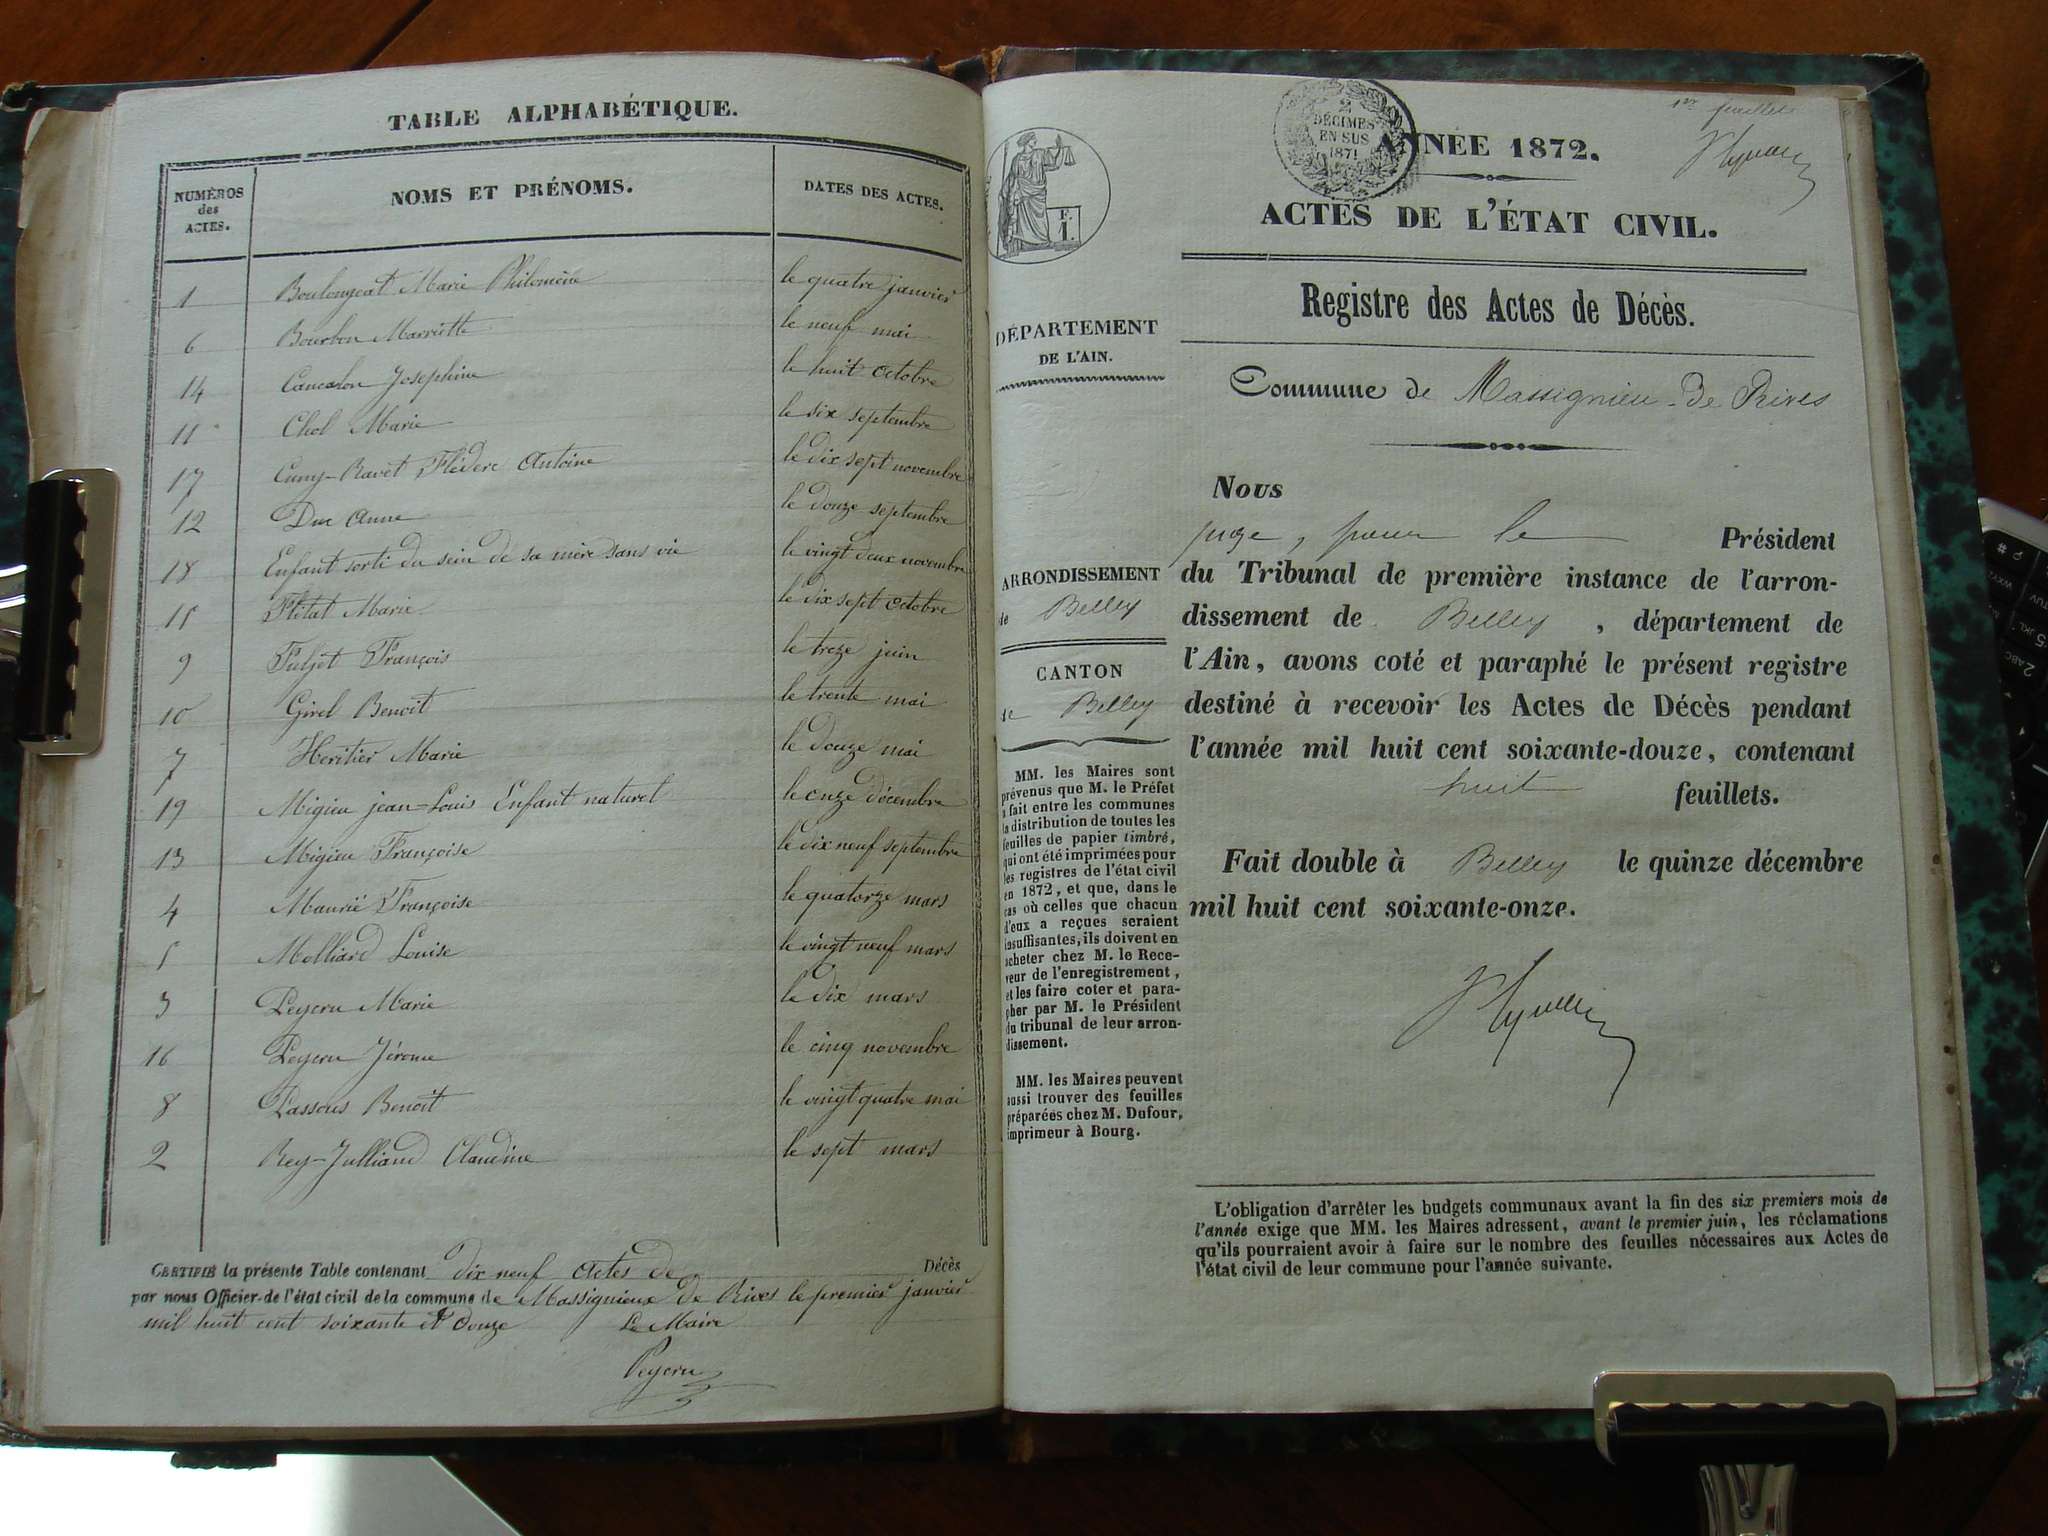 TABLE ALPHABÉTIQUE.
NUMÉROS des ACTES.
NOMS ET PRÉNOMS.
DATES DES ACTES.
1 Boulongeat Marie Philomène le quatre janvier
6 Bourbon Marriette le neuf mai
14 Cancalon Josephine le huit octobre
11 Chol Marie le six septembre
17 Cuny-Ravet Antoine le dix sept novembre
12 Duc Anne le douze septembre
18 Enfant sorti du sein de sa mère sans vie le vingt deux novembre
15 Marie le dix sept octobre
9 François le treze juin
10 Girel Benoit le trente mai
7 Heritier Marie le douze mai
19 Migieu jean-Louis Enfant naturel le onze décembre
13 Migieu Françoise le dix neuf septembre
4 Françoise le quatorze mars
5 Molliard Louise le vingt neuf mars
3 Peycru Marie le dix mars
16 Peycru Jérome le cinq novembre
8 Benoit le vingt quatre mai
2 Rey-Julliand Claudine le sept mars
CERTIFIE la présente Table contenant dix neuf actes de Décès
par nous Officier de l'état civil de la commune de Massignieux de Rives le premier janvier
mil huit cent soixante et douze Le Maire
Peycru
1er feuillet
2
DÉCIMES
EN SUS
1871
ANNÉE 1872.
F.
1.
ACTES DE L'ÉTAT CIVIL.
Registre des Actes de Décès.
DÉPARTEMENT
DE L'AIN.
Commune de Massignieu-de Rives
Nous
juge, pour le Président
ARRONDISSEMENT
de Belley
CANTON
de Belley
du Tribunal de première instance de l'arron-
dissement de Belley, département de
l'Ain, avons coté et paraphé le présent registre
destiné à recevoir les Actes de Décès pendant
l'année mil huit cent soixante-douze, contenant
huit feuillets.
Fait double à Belley le quinze décembre
mil huit cent soixante-onze.
MM. les Maires sont
prévenus que M. le Préfet
a fait entre les communes
la distribution de toutes les
feuilles de papier timbré,
qui ont été imprimées pour
les registres de l'état civil
en 1872, et que, dans le
cas où celles que chacun
d'eux a reçues seraient
insuffisantes, ils doivent en
acheter chez M. le Rece-
veur de l'enregistrement,
et les faire coter et para-
pher par M. le Président
du tribunal de leur arron-
dissement.
MM. les Maires peuvent
aussi trouver des feuilles
préparées chez M. Dufour,
imprimeur à Bourg.
L'obligation d'arrêter les budgets communaux avant la fin des six premiers mois de
l'année exige que MM. les Maires adressent, avant le premier juin, les réclamations
qu'ils pourraient avoir à faire sur le nombre des feuilles nécessaires aux Actes de
l'état civil de leur commune pour l'année suivante.